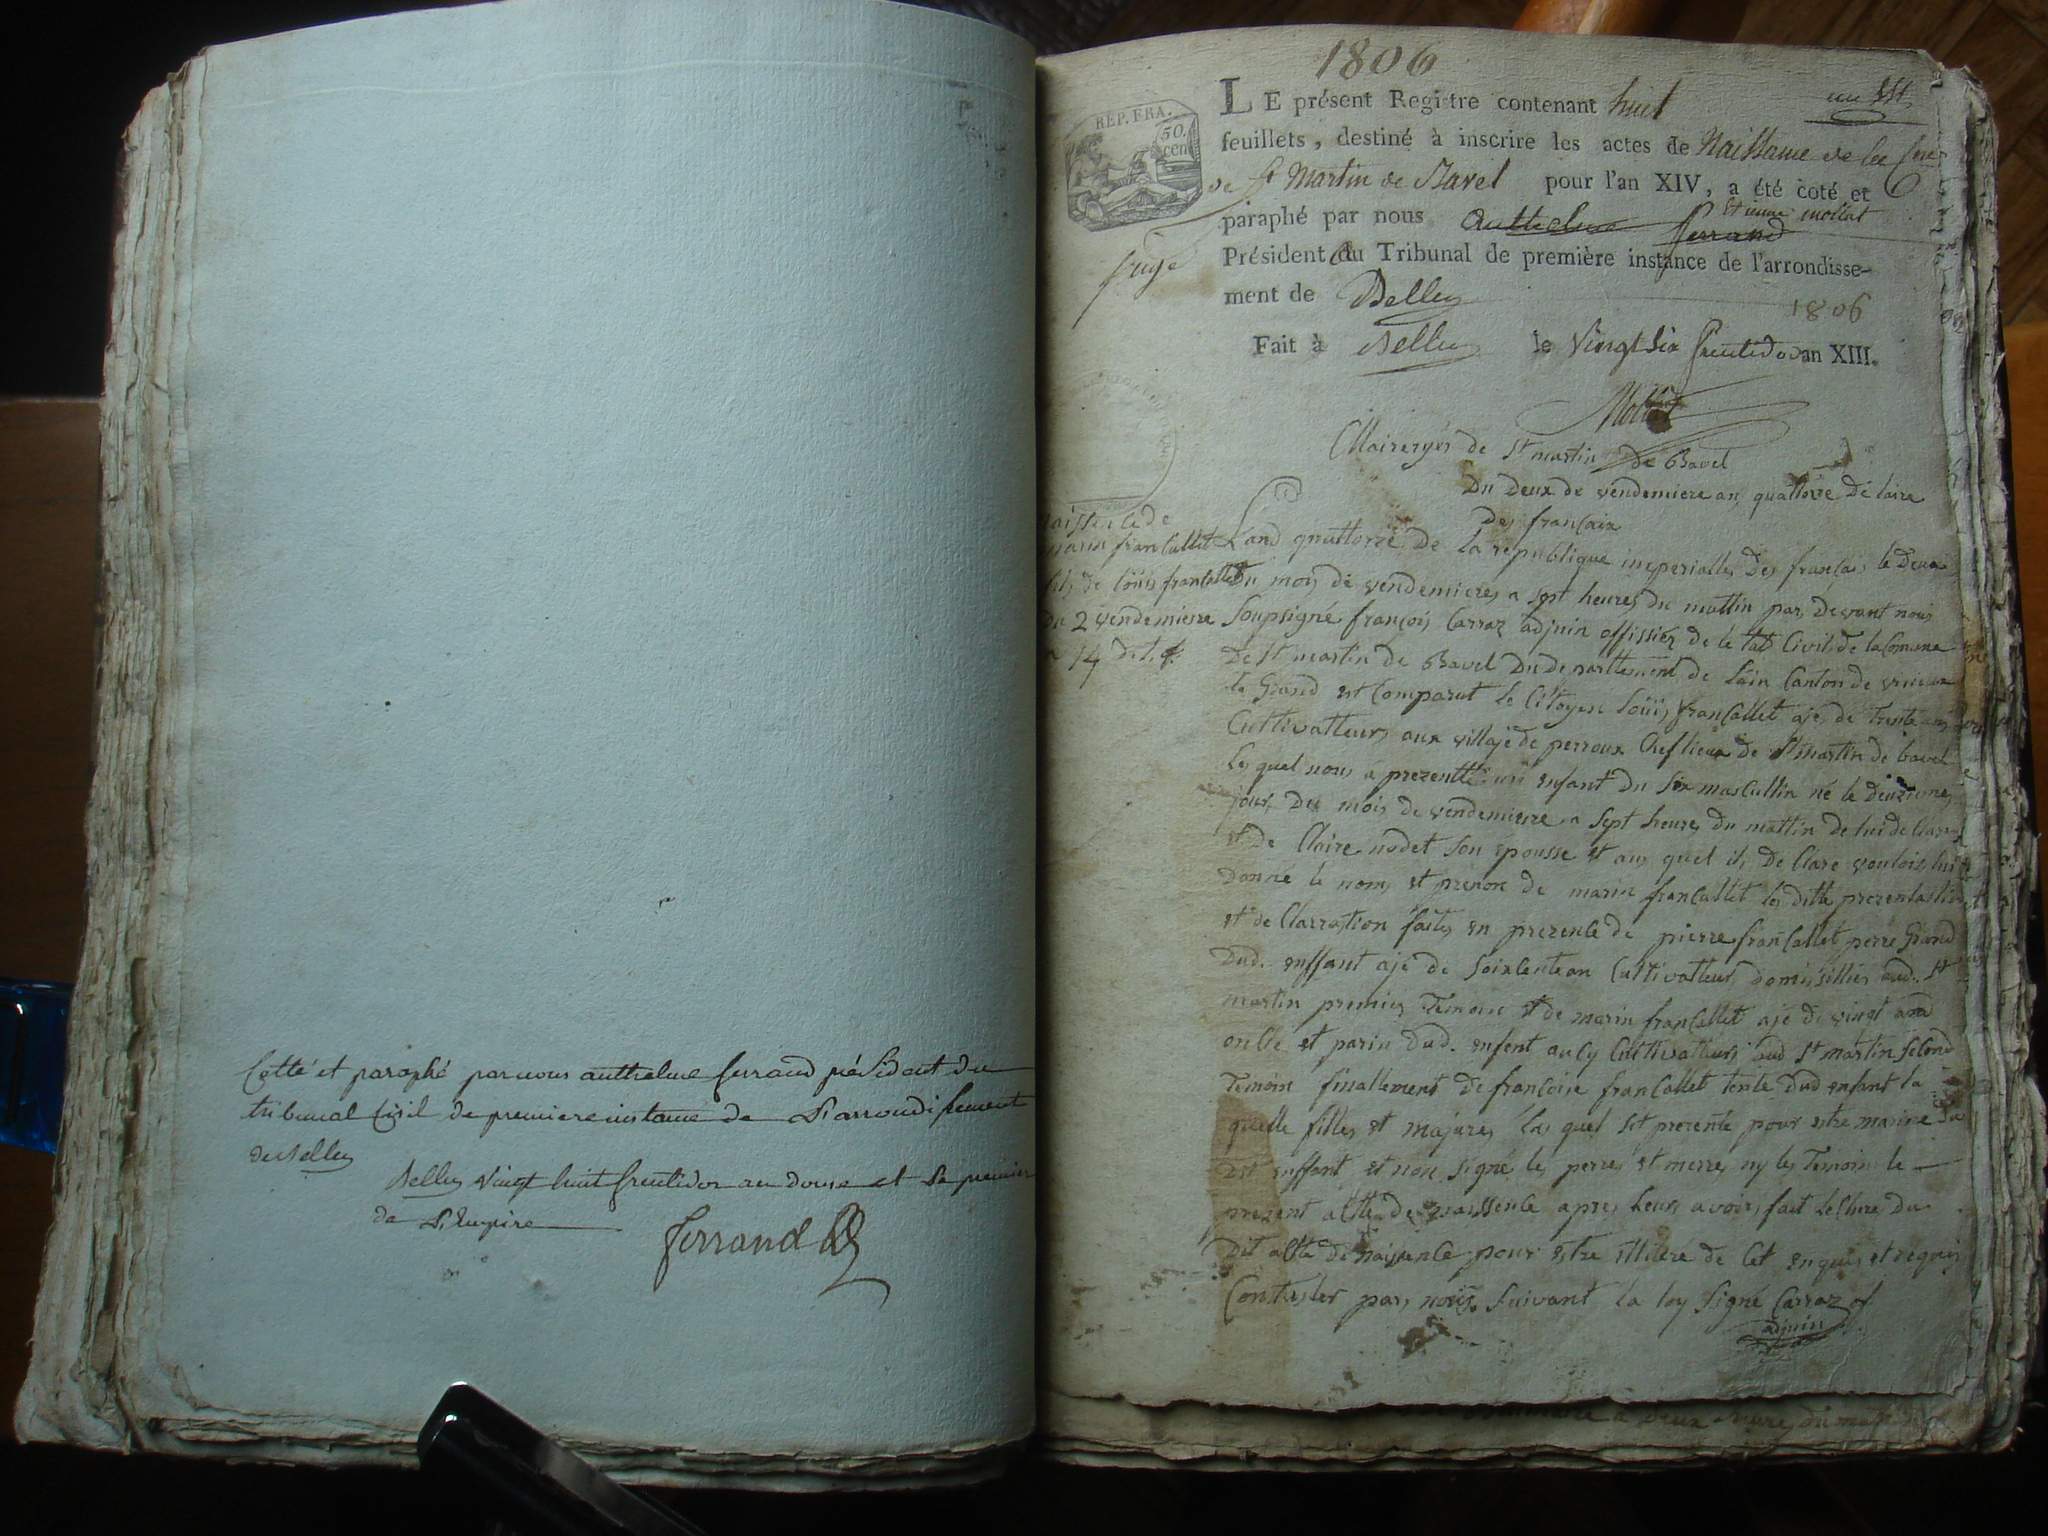 Cotté et paraphé par nous anthelme ferrand président du
tribunal Civil de premiere instance de L'arrondissement
de Belley
Belley vingt huit fructidor an douze et Le premier
de L'Empire
ferrand
1806
REP. FRA.
50.
cen
LE présent Registre contenant huit
feuillets, destiné à inscrire les actes de Naissance de la Cne
de St Martin de Bavel pour l'an XIV, a été coté et
paraphé par nous Anthelme Ferrand Etienne mollet
juge
Président du Tribunal de première instance de l'arrondisse-
ment de Belley
1806
Fait à Belley le Vingt Six fructidor an XIII.
Mollet
Mairerýes de St martin de Bavel
Du Deux de vendemiere an quattorze De laire
Des francaix
naissence de
marin francallet
fils de loüis francallet
du 2 vendemiere
14
Land quattorze de la republique imperialles Des francais le Deux
Du mois de vendemieres a sept heures du mattin par Devant nous
Soupsigné françois Carraz adjuin offissiez de le tat Civils de la Comune
De St martin de Bavel Du departtement de Lain Canton de
le Grand est Comparut le Citoyen Loüis francallet ajé de trente ans
Cultivatteurs aux villaje de perroux Cheflieux de St martin de bavel
Le quel nous a prezentté un enfant Du sex mascullin né le deuzieme
jour Du mois de vendemiere a sept heures Du mattin de lui de Clare
et de Claire nodet son epousse et au quel ils de Clare vouloir lui
Donné le nom et prenon de marin francallet les ditte prezentattion
et de Clarration faites en prezence de pierre francallet perre Grand
Dud. enffant ajé de soixlente an Cultivatteur domissillies aud. St
martin premier Temoin et de marin francallet ajé de vingt ans
oncle et parin Dud. enfent aucy Cultivatteurs aud St martin second
Temoin finallement de françoise francallet tente Dud enfant la
quelle filles et majures la quel set prezente pour estre marine du
Dit enffant et non signé les perres et merres ny les Temoins le
prezent acte de naissence apres leurs avoir fait lecture du
Dit acte de naissence pour estre illitéré de Cet enquis et requis
Constater par nous Suivant la loy signé Carraz of.
adjuin